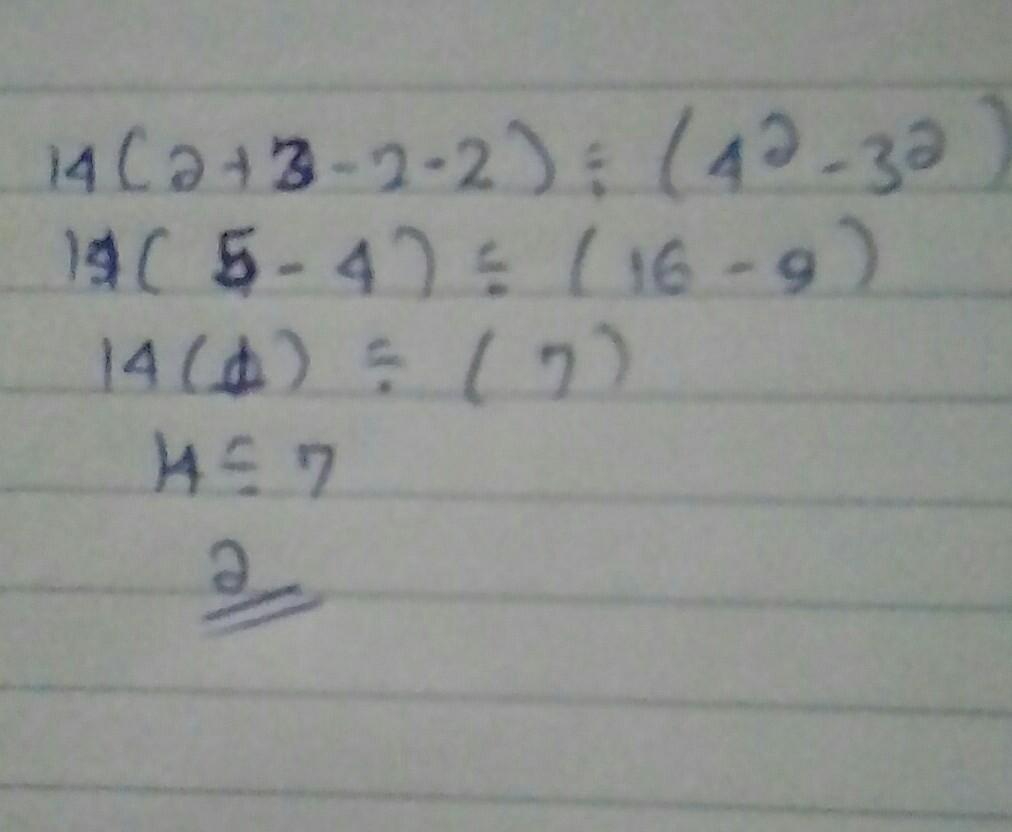 14(2+3-2-2)÷(4²-3²)
14(5-4)÷(16-9)
14(1)÷(7)
14÷7
2